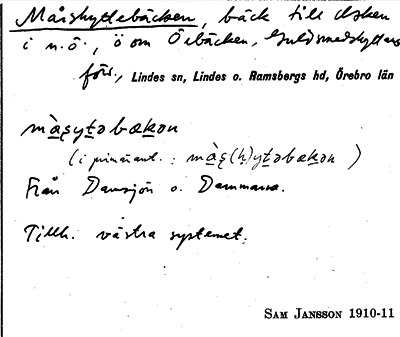 Måshyttebäcken, bäck till Asken
i n.ö., ö om Örbäcken, Guldsmedshyttans
förs., Lindes sn, Lindes o. Ramsbergs hd, Örebro län
(i primärant. :
Från Damsjön o. Dammarna.
Tillh. västra systemet.
SAM JANSSON 1910-11